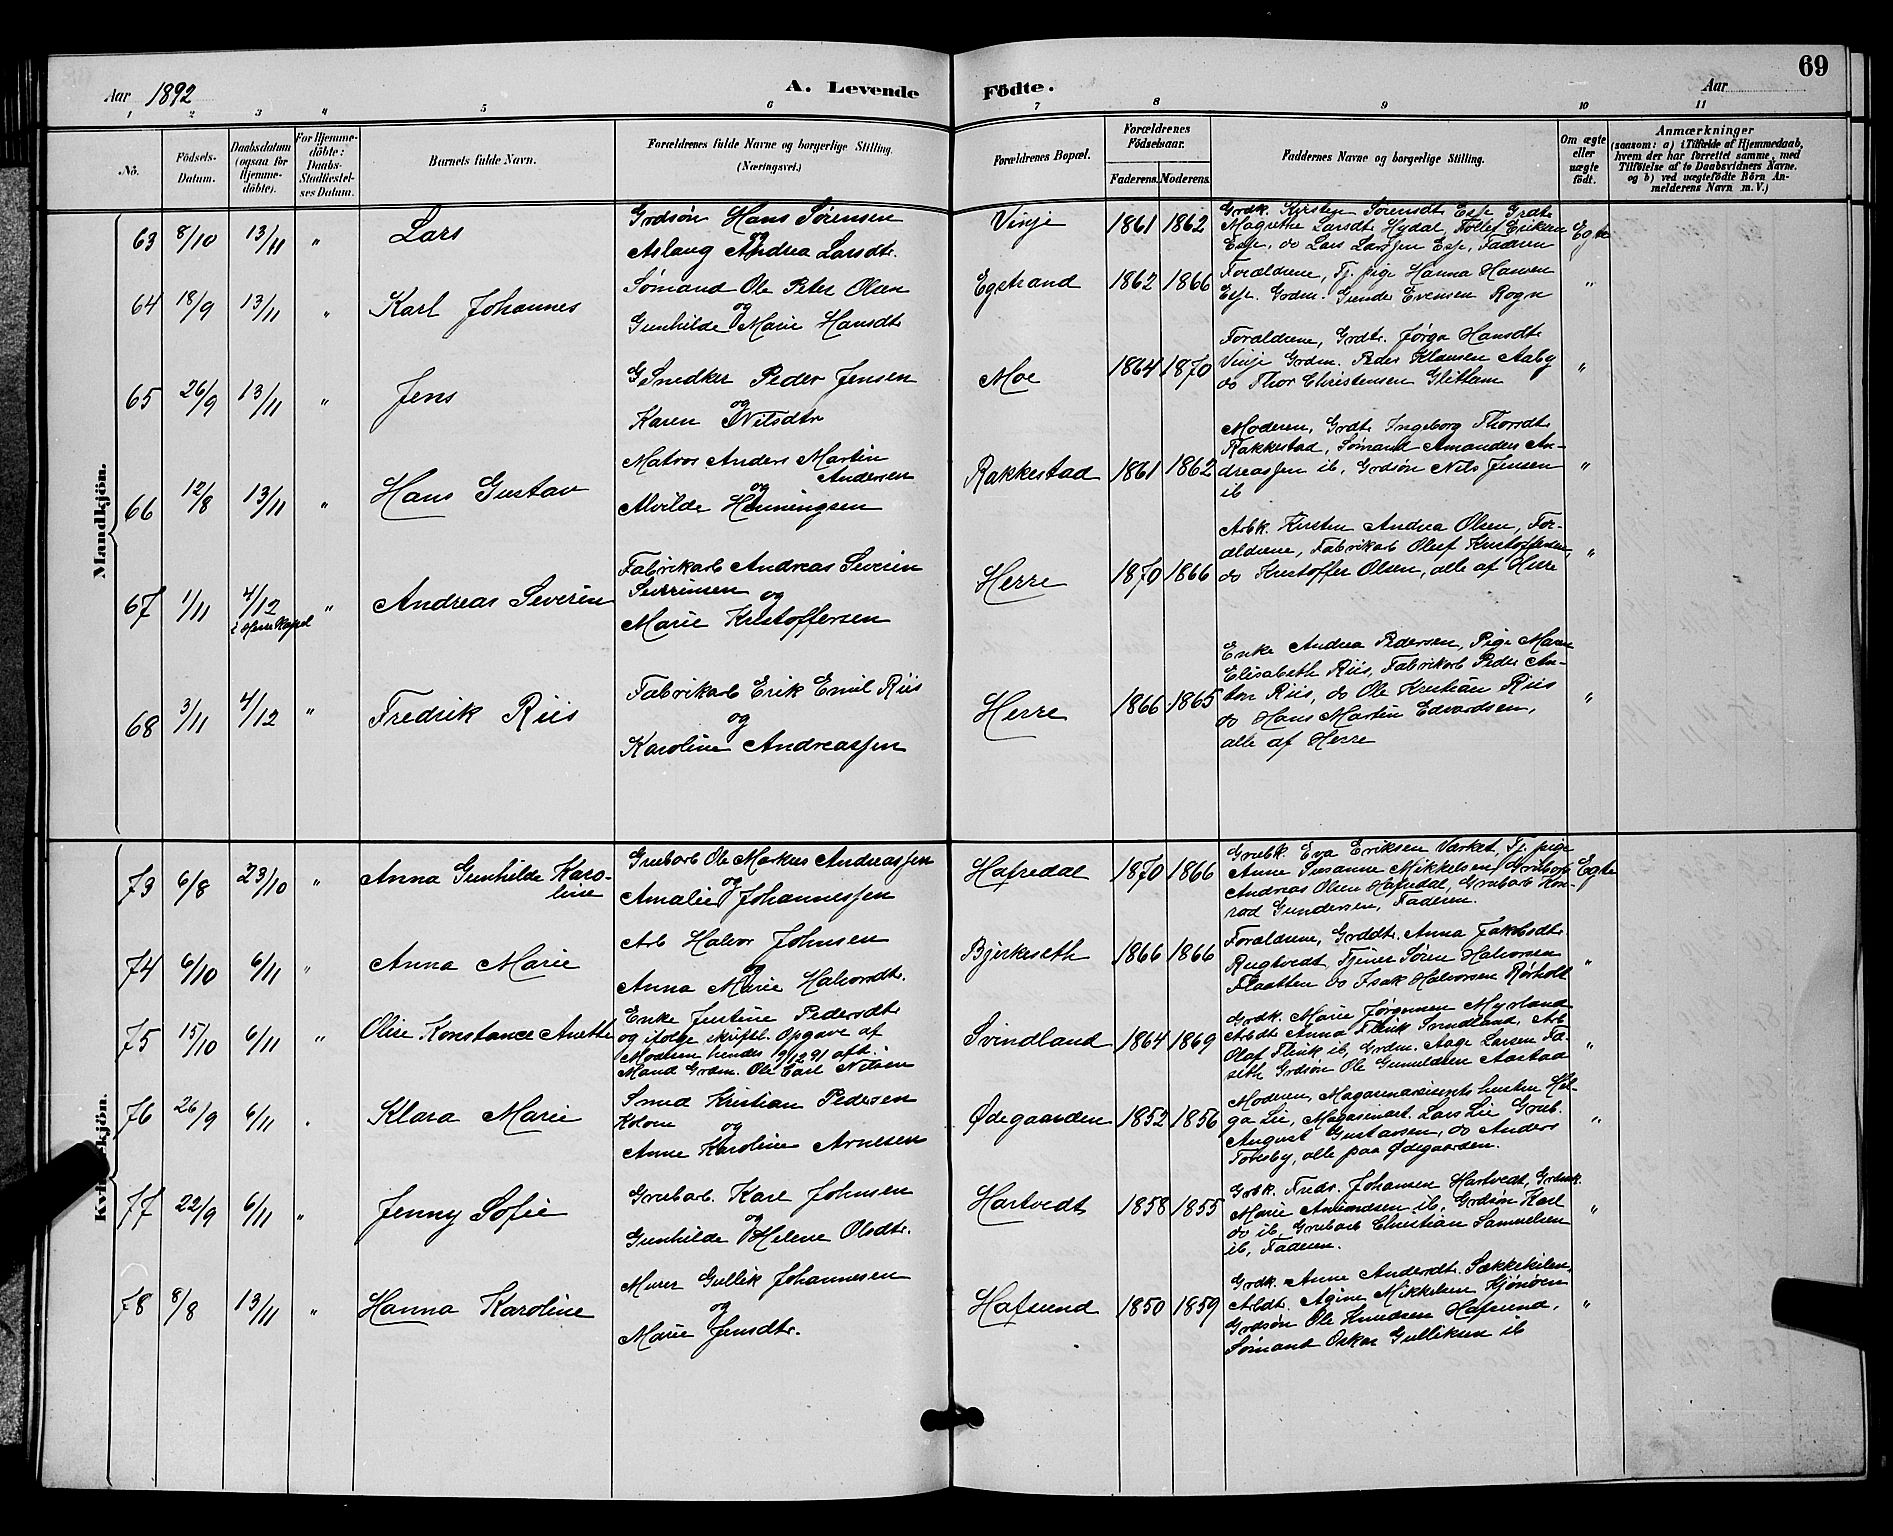 69
Aar 1892
A. Levende Födte.
Aar
1 2 3 4 5 6 7 8 9 10 11
No.
Födsels-Datum.
Daabsdatum (ogsaa for Hjemme-döbte).
For Hjemme-döbte: Daabs-Stadfæstelses Datum.
Barnets fulde Navn.
Forældrenes fulde Navne og borgerlige Stilling. (Næringsvei.)
Forældrenes Bopæl.
Forældrenes Födselsaar.
Faderens. Moderens.
Faddernes Navne og borgerlige Stilling.
Om ægte eller uægte födt.
Anmærkninger
(saasom: a) i Tilfælde af Hjemmedaab,
hvem der har forrettet samme, med
Tilföielse af to Daabsvidners Navne.
og b) ved uægtefödte Börn An-
melderens Navn m. V.)
Mandkjön.
63 8/10 13/11 " Lars
Grdsøn Hans Sørensen
og
Aslaug Andrea Larsdt.
Vinje 1861 1862
Grdk. Kirstine Sørensdt. Esp. Grdt.
Magrethe Larsdt. Hydal, Tollef Eriksen
Esp. do Lars Larssen Esp. Faderen
Egte
64 18/9 13/11 " Karl Johannes
Sømand Ole Peter Olsen
og
Gunhilde Marie Hansdt.
Egstrand 1862 1866
Forældrene, Tj. pige Hanna Hansen
Esp. Grdm. Gunder Evensen Rogn
"
65 26/9 13/11 " Jens
G Snedker Peder Jensen
og
Karen Nilsdtr
Moe 1864 1870
Forældrene, Grdt. Jørga Hansdt.
Vinje Grdm. Peder Klausen Aaby
do Thor Christensen Glittum
"
66 12/8 13/11 " Hans Gustav
Matros Anders Martin
Andersen
og
Alvilde Henningsen
Rakkestad 1861 1862
Moderen, Grdt. Ingeborg Thorsdt.
Rakkestad, Sømand Amandus An-
dreassen ib, Grdsøn Nils Jensen
ib
"
67 1/11 4/12 i Herre Kapel " Andreas Severin
Fabrikarb Andreas Severin
Severinsen og
Marie Kristoffersen
Herre 1870 1866
Arbk. Kirsten Andrea Olsen, For-
ældrene, Fabrikarb Oluf Kristoffersen,
do Kristoffer Olsen, alle af Herre
"
68 3/11 4/12 " Fredrik Riis
Fabrikarb Erik Emil Riis
og
Karoline Andreassen
Herre 1866 1865
Enke Andrea Pedersen, Pige Maren
Elisabeth Riis, Fabrikarb Peder An-
ton Riis, do Ole Kristian Riis
do Hans Martin Edvardsen,
alle af Herre
"
Kvindekjön.
73 6/8 23/10 " Anna Gunhilde Karo-
line
Grubarb Ole Markus Andreassen
og
Amalie Johannessen
Hafredal 1870 1866
Grubk. Eva Eriksen Værket, Tj. pige
Anne Susanne Mikkelsen, Grubarb
Andreas Olsen Hafredal, Grubarb Kon-
rad Gundersen, Faderen.
Egte
74 6/10 6/11 " Anna Marie
Arb Halvor Johnsen
og
Anna Marie Halvorsdt.
Bjerkeseth 1866 1866
Forældrene, Grddt. Anna Jakobsdt.
Rugtvedt, Tjener Søren Halvorsen
Flaatten do Isak Halvorsen Rørholt
"
75 15/10 6/11 " Oline Konstance Anette
Enke Justine Pedersdt.
og ifølge skriftl. Opgave af
Moderen hendes 19/12 91 afd.
Mand Grdm. Ole Carl Nilsen
Svindland 1864 1869
Grdk. Marie Jørgensen Myrland
Arbdt. Anna Flink Svindland, Arb
Olaf Flink ib, Grdm. Aage Larsen Fa-
seth Grdsøn Ole Gunuldsen Aastad
"
76 26/9 6/11 " Klara Marie
Smed Kristian Pedersen
og
Anne Karoline Arnesen
Ødegaarden 1852 1856
Moderen, Magasinassistents hustru Hel-
ga Lie, Magasinass. Lars Lie Grub.
August Gustavsen, do Anders
Torsby, alle paa Ødegaarden.
"
77 22/9 6/11 " Jenny Sofie
Grubarb. Karl Johnsen
og
Gunhilde Helene Olsdt.
Hartvedt 1858 1855
Grbk. Fredr. Johansen Hartvedt, Grdmk.
Marie Amundsen ib, Grdsøn Karl
do ib, Grubarb Christian Samuelsen
ib, Faderen.
"
78 8/8 13/11 " Hanna Karoline
Murer Gullik Johannesen
og
Marie Jensdt.
Hafsund 1850 1859
Grdk. Anne Andersdt. Sækkekilen,
Arbdt. Agine Mikkelsen Hjønøen
Grdsøn Ole Knudsen Hafsund,
Sømand Oskar Gulliksen ib
"